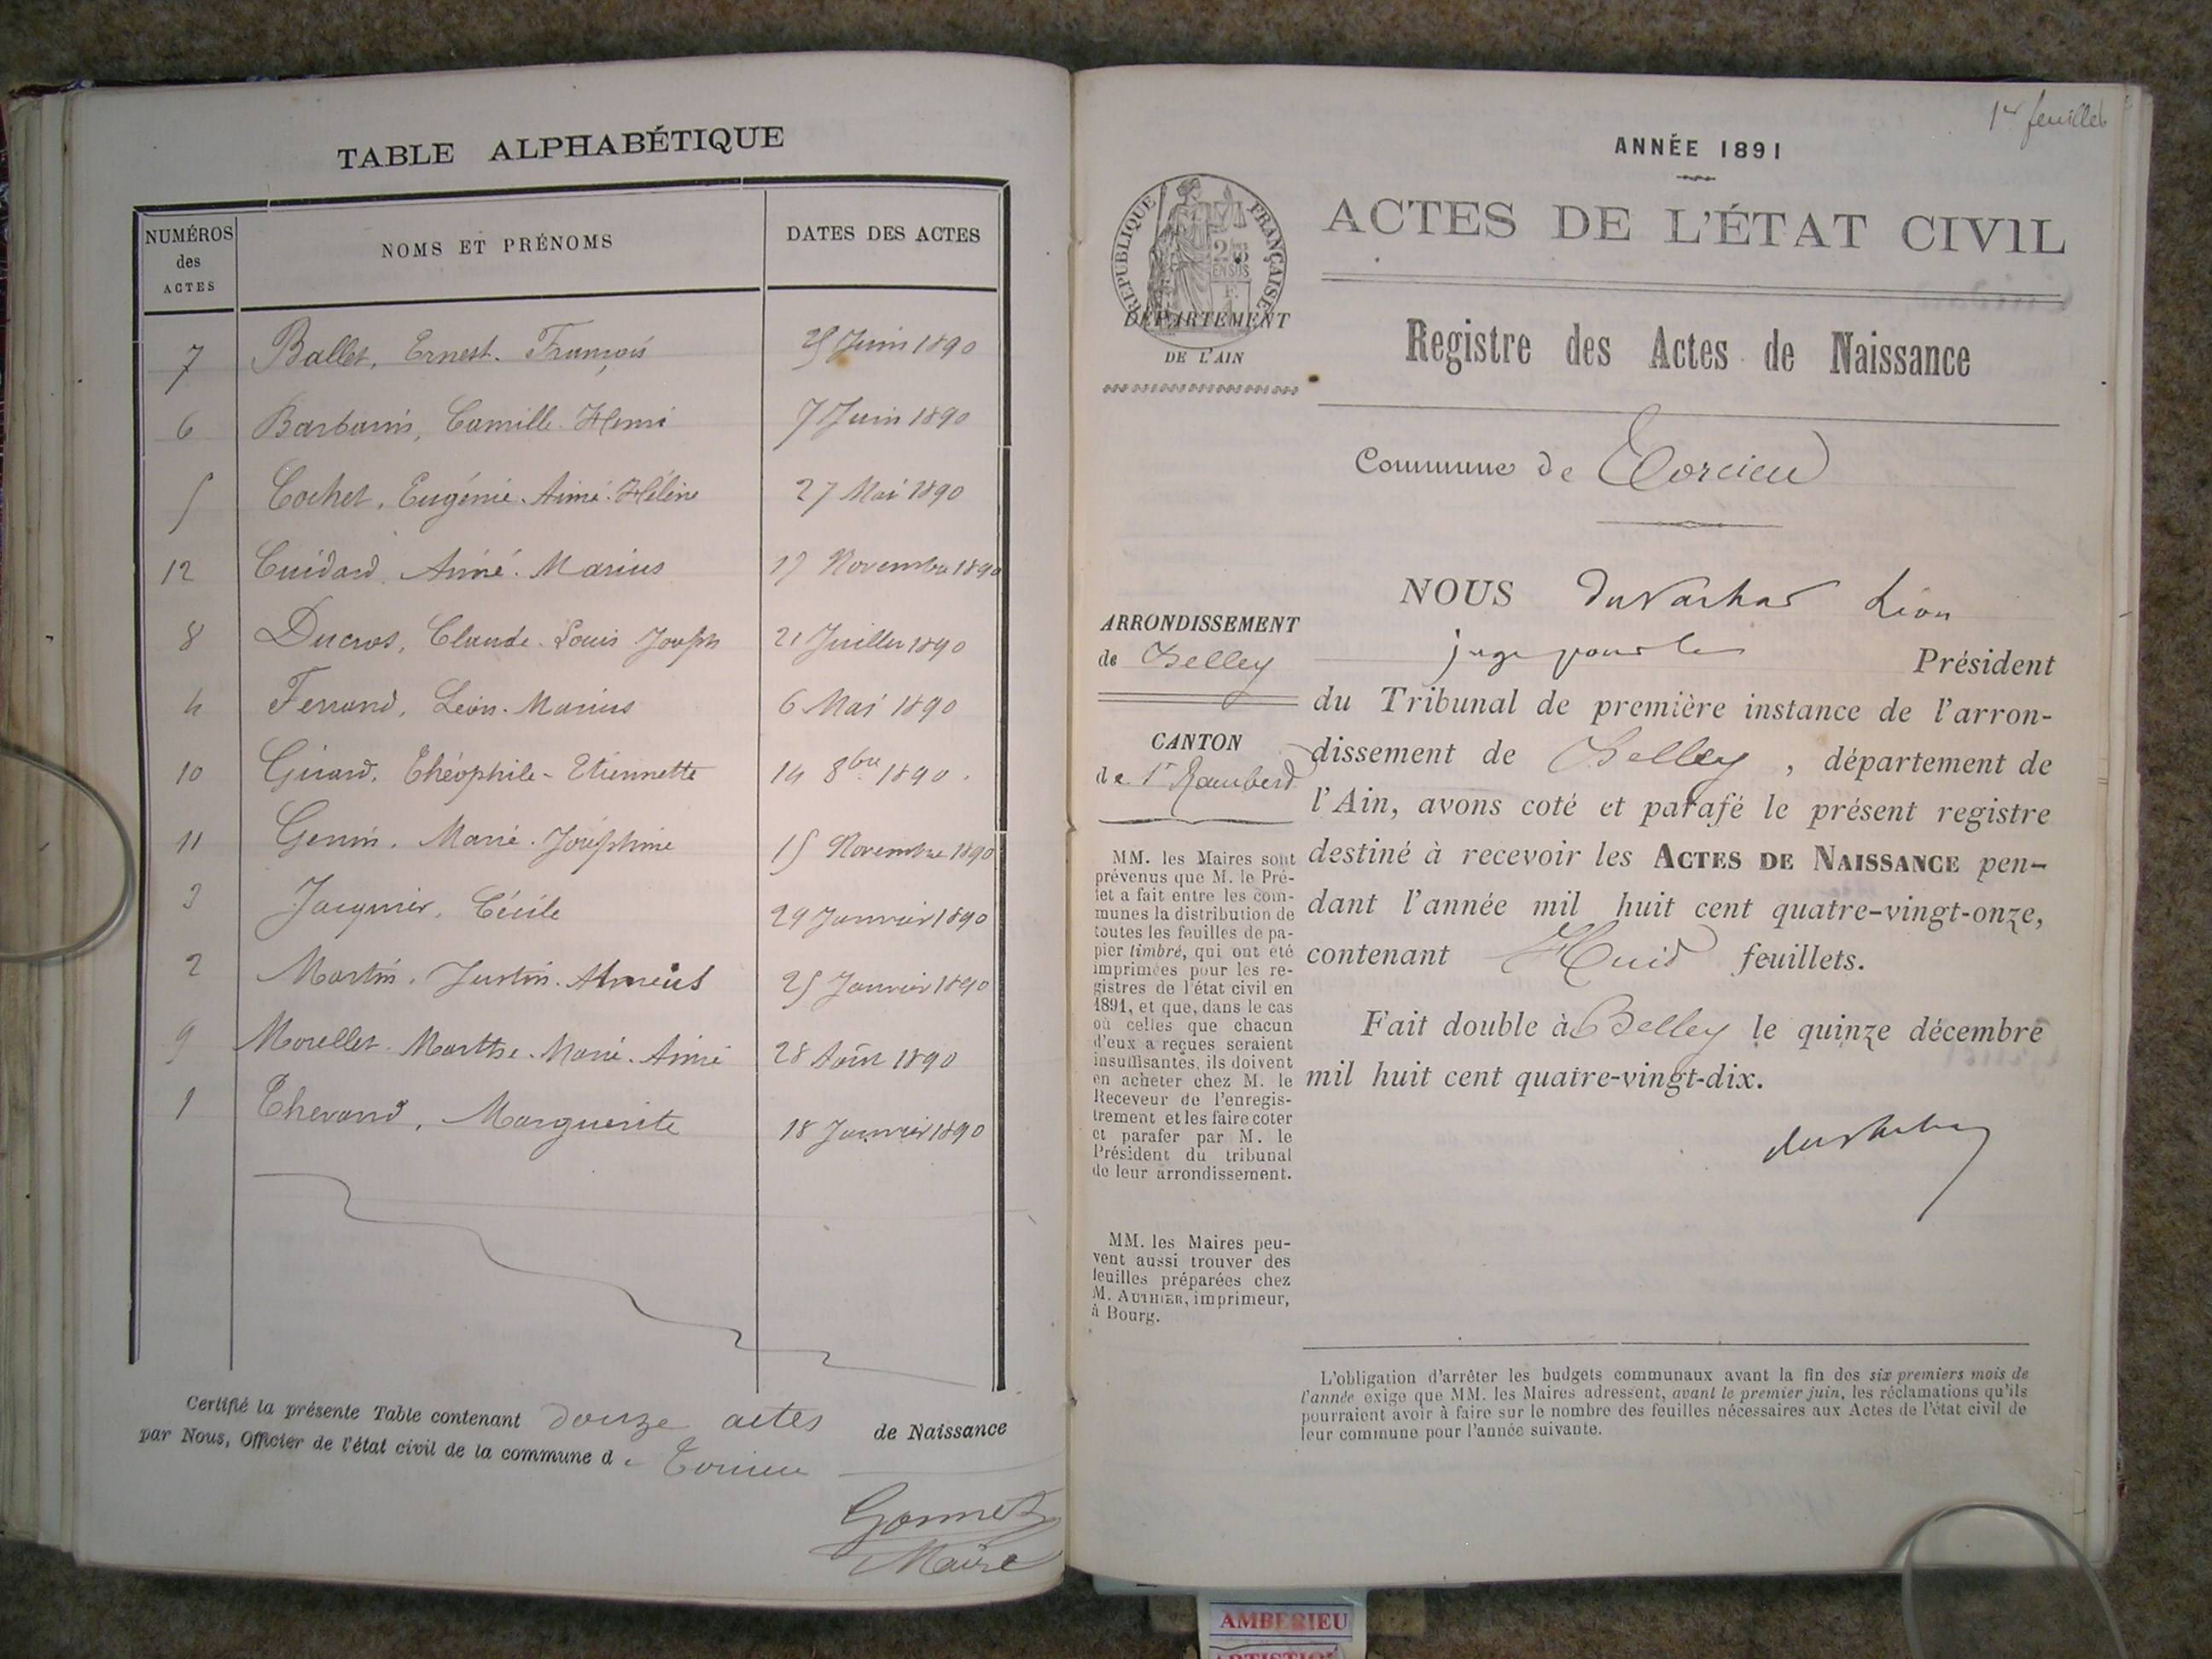 TABLE ALPHABÉTIQUE
NUMÉROS
des
ACTES
NOMS ET PRÉNOMS
DATES DES ACTES
7 Ballet, Ernest. François 25 Juin 1890
6 Barbarin, Camille Henri 7 Juin 1890
5 Cochet, Eugénie. Aimé. Hélène 27 Mai 1890
12 Cuidard, Aimé. Marius 17 Novembre 1890
8 Ducros, Claude. Louis Joseph 21 Juillet 1890
4 Ferrand, Léon. Marius 6 Mai 1890
10 Girard, Théophile - Etiennette 14 8bre 1890.
11 Genin, Marie. Joséphine 15 Novembre 1890
3 Jacquier, Cécile 29 Janvier 1890
2 Martin, Justin. 25 Janvier 1890
9 Morellet Marthe. Marie. Aimé 28 Août 1890
1 Thevand, Marguerite 18 Janvier 1890
Certifié la présente Table contenant douze actes de Naissance
par Nous, Officier de l'état civil de la commune de Torcieu
Gonnet
Maire
1er feuillet
ANNÉE 1891
RÉPUBLIQUE FRANÇAISE
DÉPARTEMENT
DE L'AIN
ACTES DE L'ÉTAT CIVIL
Registre des Actes de Naissance
Commune de Torcieu
ARRONDISSEMENT
de Belley
CANTON
de St Rambert
MM. les Maires sont
prévenus que M. le Pré-
fet a fait entre les com-
munes la distribution de
toutes les feuilles de pa-
pier timbré, qui ont été
imprimées pour les re-
gistres de l'état civil en
1891, et que, dans le cas
où celles que chacun
d'eux a reçues seraient
insuffisantes, ils doivent
en acheter chez M. le
Receveur de l'enregis-
trement et les faire coter
et parafer par M. le
Président du tribunal
de leur arrondissement.
MM. les Maires peu-
vent aussi trouver des
feuilles préparées chez
M. AUTHIER, imprimeur,
à Bourg.
NOUS Léon
juge pour le Président
du Tribunal de première instance de l'arron-
dissement de Belley , département de
l'Ain, avons coté et parafé le présent registre
destiné à recevoir les ACTES DE NAISSANCE pen-
dant l'année mil huit cent quatre-vingt-onze,
contenant Huit feuillets.
Fait double à Belley le quinze décembre
mil huit cent quatre-vingt-dix.
L'obligation d'arrêter les budgets communaux avant la fin des six premiers mois de
l'année exige que MM. les Maires adressent, avant le premier juin, les réclamations qu'ils
pourraient avoir à faire sur le nombre des feuilles nécessaires aux Actes de l'état civil de
leur commune pour l'année suivante.
AMBERIEU